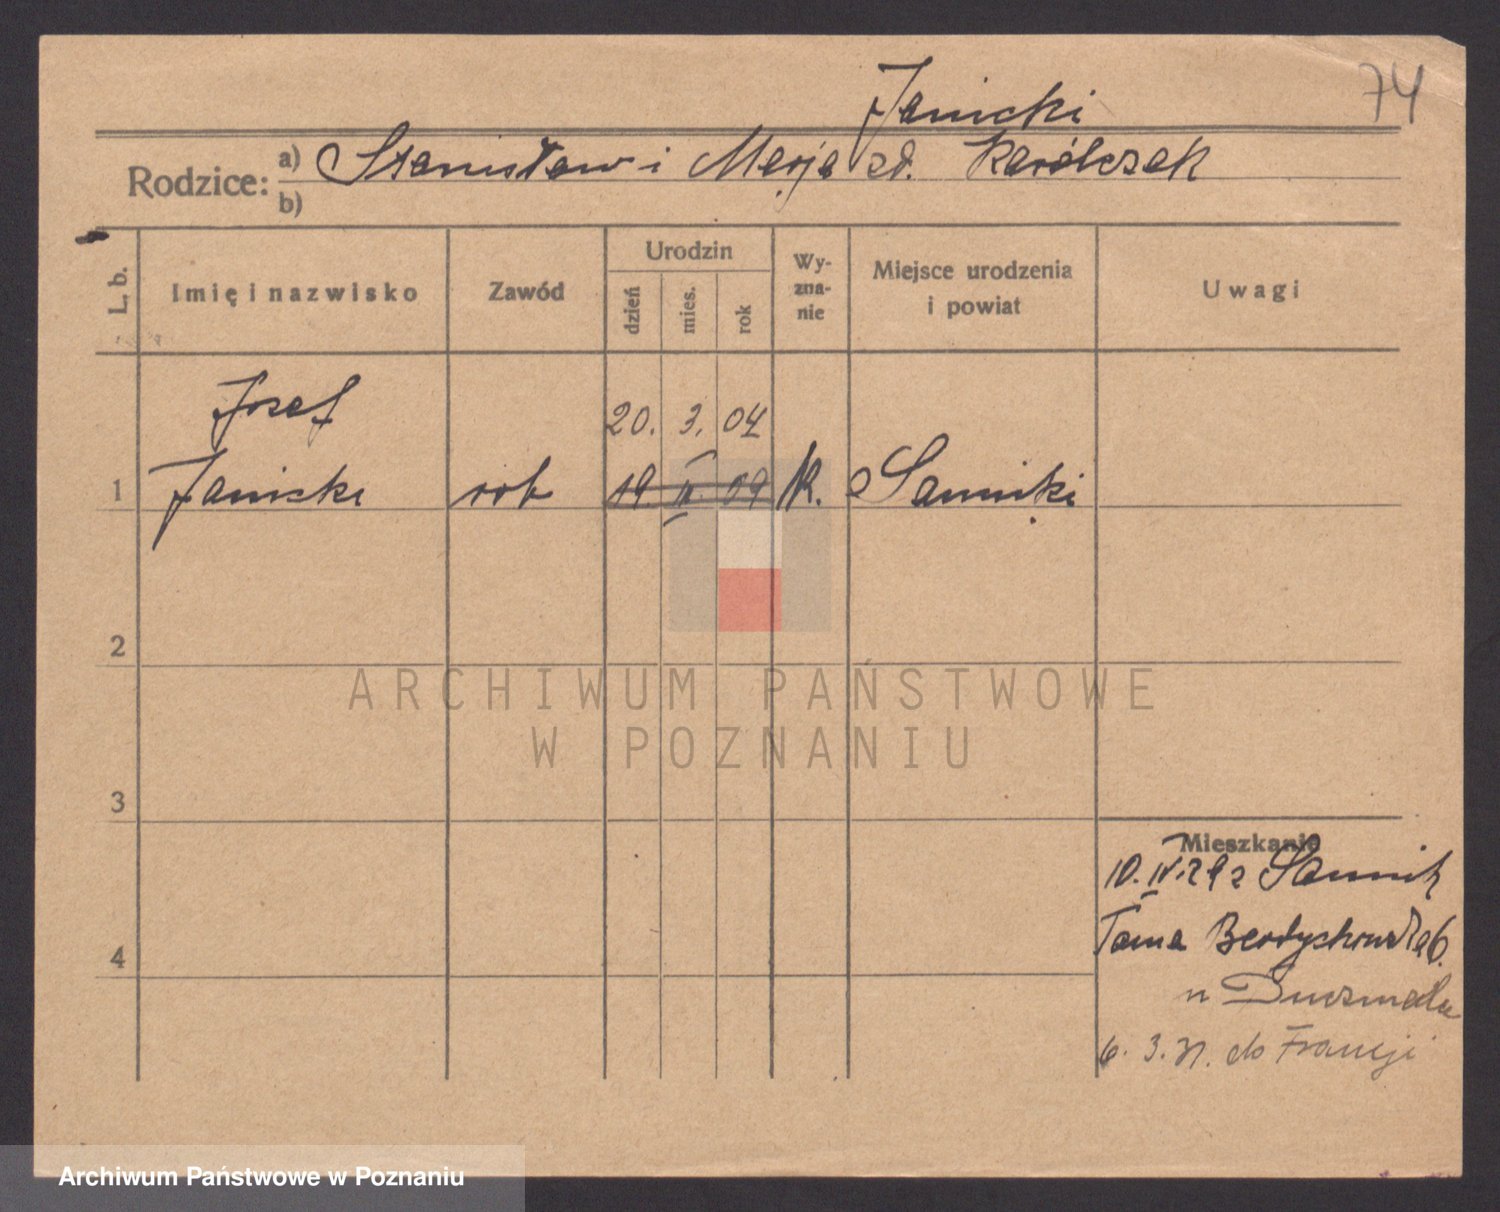 74
Janicki
Rodzice: a) Stanisław i Marja zd. Karólczak
b)
L. b. Imię i nazwisko Zawód Urodzin dzień mies. rok Wy-zna-nie Miejsce urodzenia i powiat Uwagi
Józef 20. 3. 04
1 Janicki rob 19. II. 09 rk. Sanniki
2
ARCHIWUM PAŃSTWOWE
W POZNANIU
3
Mieszkanie
10. IV. 29 z Sannik
Tama Berdychowska 6.
4
u
6. 3. 31. do Francji
Archiwum Państwowe w Poznaniu